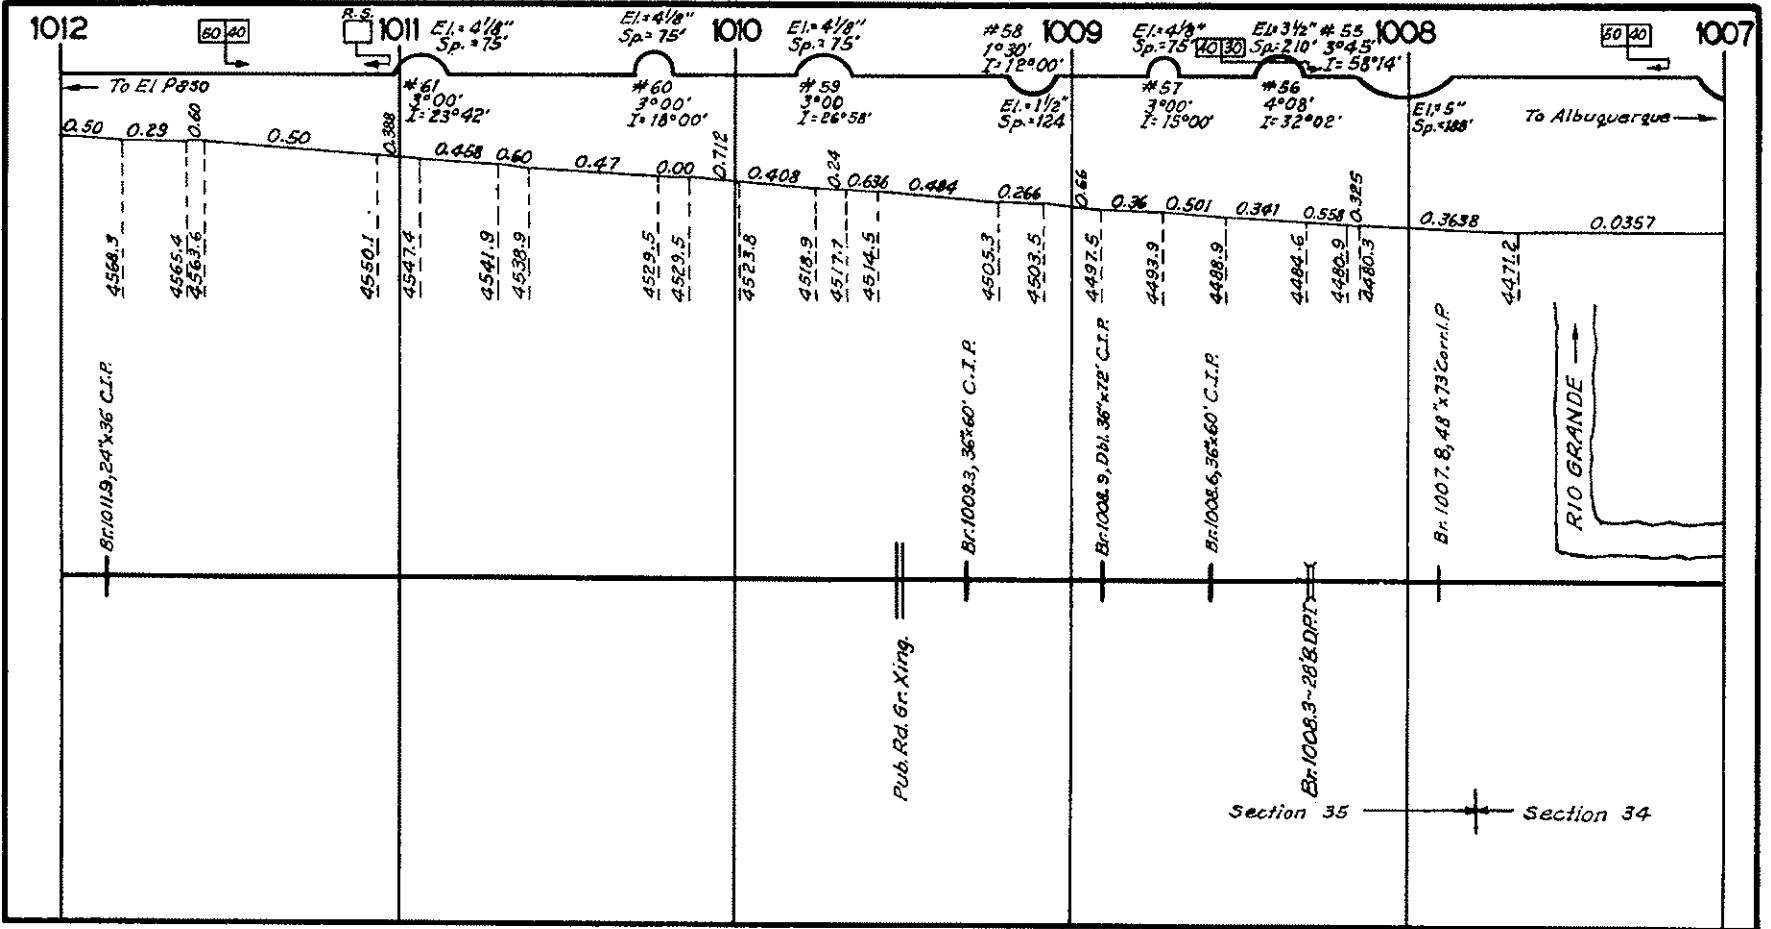 1012
1011
1010
1009
1008
1007
60 40
R.S.
El.= 4 1/8"
Sp.= 75'
El.= 4 1/8"
Sp.= 75'
El.= 4 1/8"
Sp.= 75'
#58
1°30'
I= 12°00'
El.= 4 1/8"
Sp.= 75'
40 30
El= 3 1/2"
Sp.= 210'
# 55
3°45'
I= 58°14'
60 40
To El Paso
#61
3°00'
I= 23°42'
#60
3°00'
I= 18°00'
#59
3°00
I= 26°58'
El.= 1 1/2"
Sp.= 124
#57
3°00'
I= 15°00'
#56
4°08'
I= 32°02'
El.= 5"
Sp.= 188'
To Albuquerque
0.50
0.29
0.60
0.50
0.388
0.458
0.60
0.47
0.00
0.712
0.408
0.24
0.636
0.484
0.266
0.66
0.36
0.501
0.341
0.558
0.325
0.3638
0.0357
4568.3
4565.4
4563.6
4550.1
4547.4
4541.9
4538.9
4529.5
4529.5
4523.8
4518.9
4517.7
4514.5
4505.3
4503.5
4497.5
4493.9
4488.9
4484.6
4480.9
4480.3
4471.2
Br. 1011.9, 24"x36' C.I.P.
Br. 1009.3, 36"x60' C.I.P.
Br. 1008.9, Dbl. 36"x72' C.I.P.
Br. 1008.6, 36"x60' C.I.P.
Br. 1007.8, 48"x73' Corr.I.P.
RIO GRANDE
Pub. Rd. Gr. Xing.
Br. 1008.3~28' B.D.P.T.
Section 35
Section 34